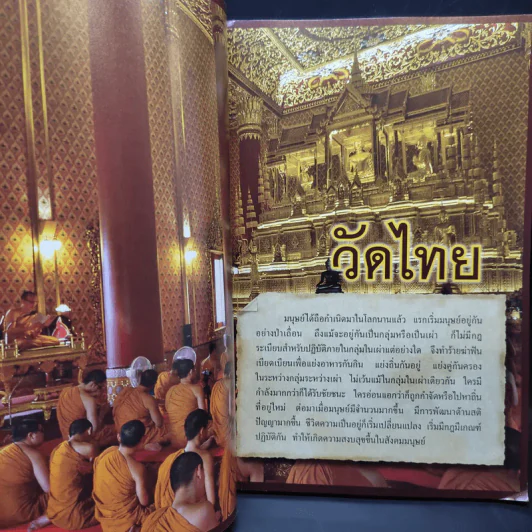 วัดไทย
มนุษย์ได้ถือกำเนิดมาในโลกนานแล้ว แรกเริ่มมนุษย์อยู่กัน
อย่างป่าเถื่อน ถึงแม้จะอยู่กันเป็นกลุ่มหรือเป็นเผ่า ก็ไม่มีกฎ
ระเบียบสำหรับปฏิบัติภายในกลุ่มในเผ่าแต่อย่างใด จึงทำร้ายฆ่าฟัน
เบียดเบียนเพื่อแย่งอาหารกันกิน แย่งถิ่นกันอยู่ แย่งคู่กันครอง
ในระหว่างกลุ่มระหว่างเผ่า ไม่เว้นแม้ในกลุ่มในเผ่าเดียวกัน ใครมี
กำลังมากกว่าก็ได้รับชัยชนะ ใครอ่อนแอกว่าก็ถูกกำจัดหรือไปหาถิ่น
ที่อยู่ใหม่ ต่อมาเมื่อมนุษย์มีจำนวนมากขึ้น มีการพัฒนาด้านสติ
ปัญญามากขึ้น ชีวิตความเป็นอยู่ก็เริ่มเปลี่ยนแปลง เริ่มมีกฎมีเกณฑ์
ปฏิบัติกัน ทำให้เกิดความสงบสุขขึ้นในสังคมมนุษย์